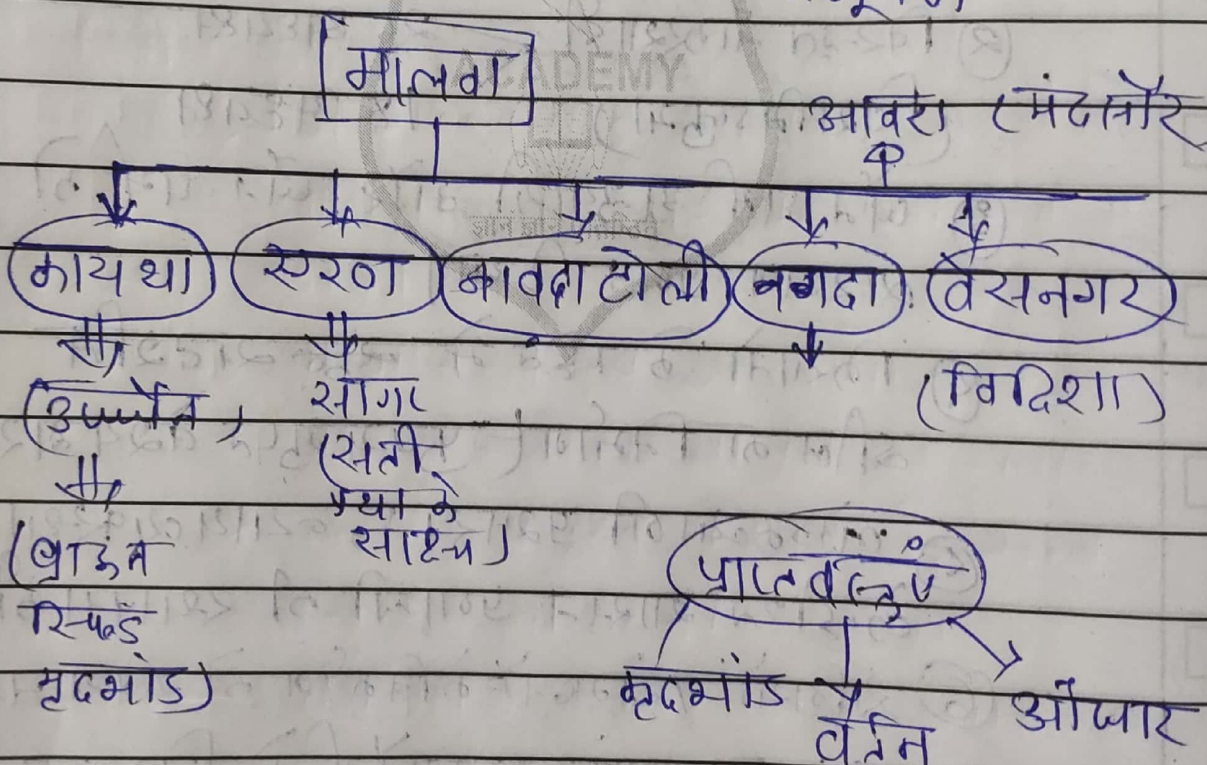 मालवा
आवरा (मंदसौर
कायथा एरण नावदाटोली नगदा बेसनगर
(उज्जैन) सागर (विदिशा)
(सती
प्रथा के
साक्ष्य)
(ब्राऊन
स्लिप्ड
मृदभांड)
प्राप्त वस्तुएं
मृदभांड वर्तन औजार
ACADEMY